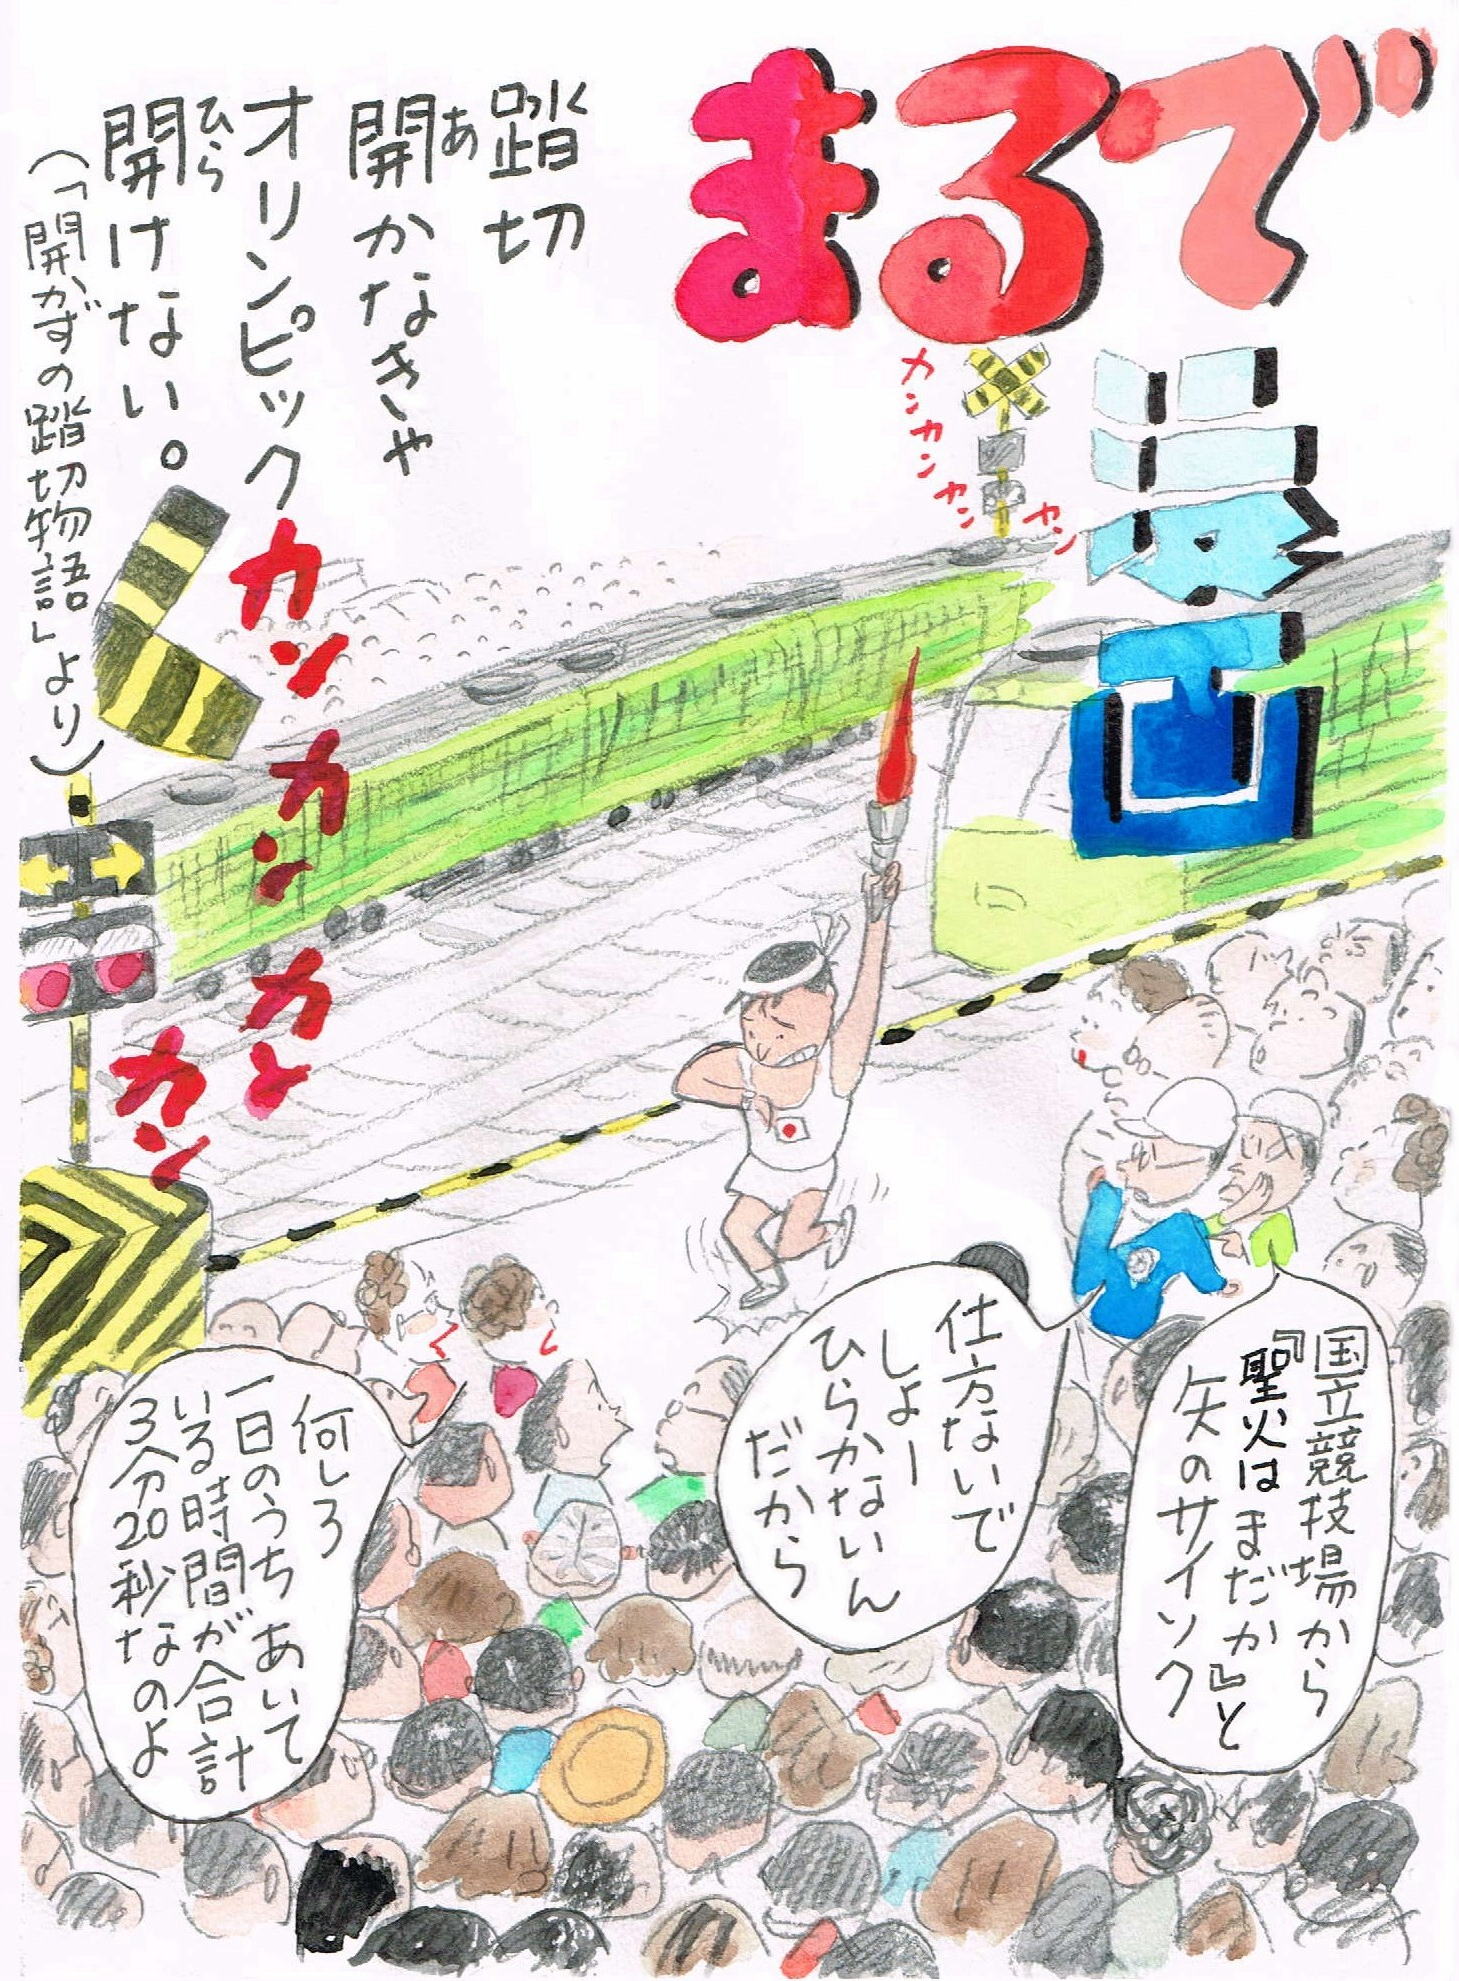 まるで
踏切
開かなきゃ
あ
オリンピック
開けない。
ひら
(「開かずの踏切物語」より)
カンカンカンカン
カンカンカンカン
国立競技場から
『聖火はまだか』と
矢のサイソク
仕方ないで
しょー
ひらかないん
だから
何しろ
一日のうちあいて
いる時間が合計
3分20秒なのよ